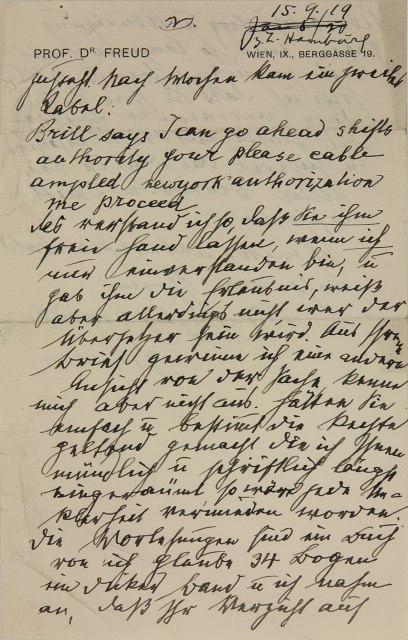 15.9.19
z.Z. Hamburg
PROF. DR. FREUD
WIEN, IX., BERGGASSE 19.
Nach Wochen kam ein zweites
Kabel:
Brill says I can go ahead shifts
authority your please cable
ampled newyork authorization
me proceed
das verstand ich so, daß Sie ihm
freie Hand lassen, wenn ich
nur einverstanden bin, u
gab ihm die Erlaubnis, weiß
aber allerdings nicht wer der
Übersetzer sein wird. Aus Ihrem
Brief gewinne ich eine andere
Ansicht von der Sache, kenne
mich aber nicht aus. Hätten Sie
einfach u bestimmt die Rechte
geltend gemacht die ich Ihnen
mündlich u schriftlich längst
eingeräumt, so wäre jede Un-
klarheit vermieden worden.
Die Vorlesungen sind ein Buch
von ich glaube 34 Bogen
ein dicker Band u ich nahm
an, daß Ihr Verzicht auf